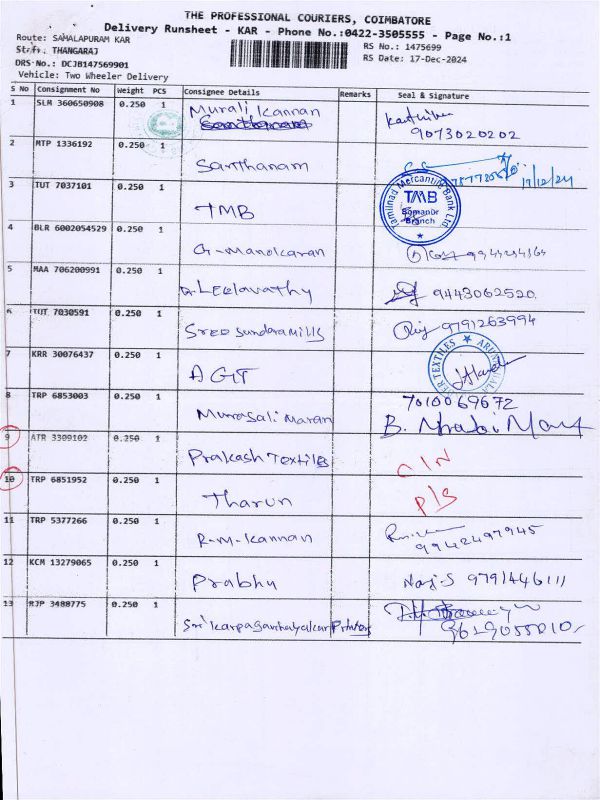 THE PROFESSIONAL COURIERS, COIMBATORE
Delivery Runsheet - KAR - Phone No.:0422-3505555 - Page No.:1
Route: SAMALAPURAM KAR
RS No.: 1475699
Staff: THANGARAJ
RS Date: 17-Dec-2024
DRS No.: DCJB147569901
Vehicle: Two Wheeler Delivery
S No Consignment No Weight PCS Consignee Details Remarks Seal & Signature
1 SLM 360650908 0.250 1 Murali Kannan
Santhanam
9073020202
2 MTP 1336192 0.250 1 Santhanam
17/12/24
3 TUT 7037101 0.250 1 TMB
Tamilnad Mercantile Bank Ltd
TMB
Somanur
Branch
4 BLR 6002054529 0.250 1 G-Manokaran
5 MAA 706200991 0.250 1 Leelavathy 9443062520
6 TUT 7030591 0.250 1 Sree Sundara Mills 9791263994
7 KRR 30076437 0.250 1 AGT
TEXTILES
8 TRP 6853003 0.250 1 Murasali Maran
7010069672
9 ATR 3309102 0.250 1 Prakash Textiles CIN
10 TRP 6851952 0.250 1 Tharun P/S
11 TRP 5377266 0.250 1 R-M-Kannan
9942497945
12 KCM 13279065 0.250 1 Prabhu Naj-S 9791446111
13 RJP 3488775 0.250 1 Printers